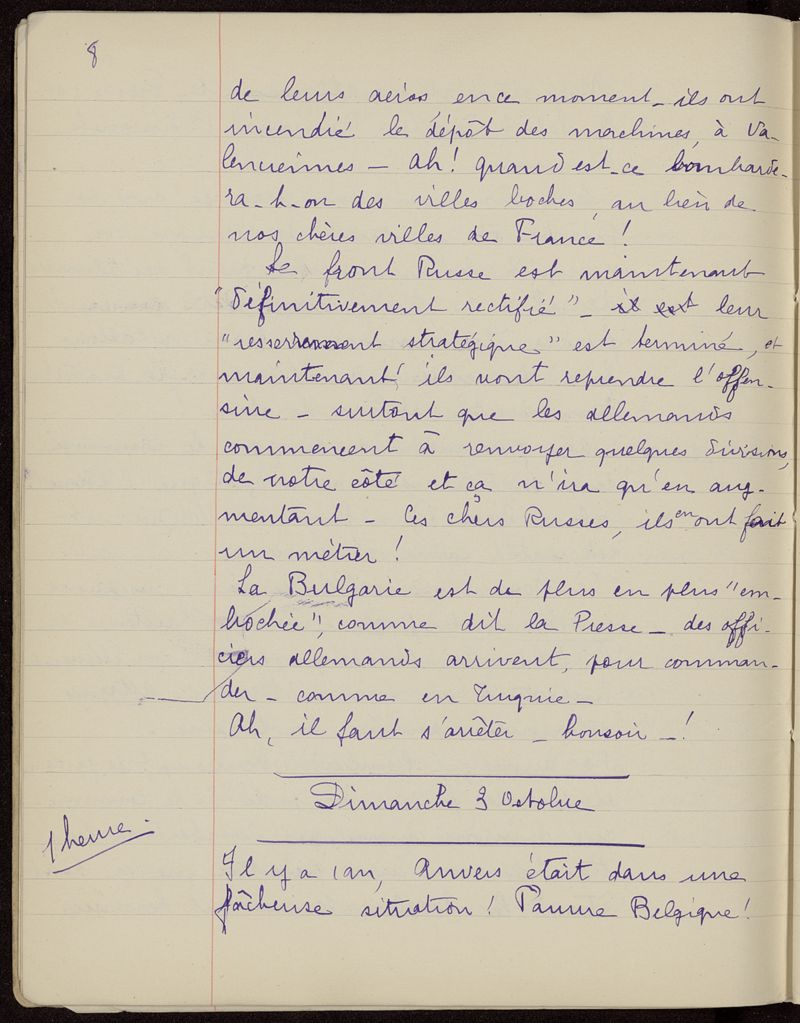 8
de leurs aéros, en ce moment - ils ont
incendié le dépôt des machines, à Va-
lenciennes - Ah! quand est-ce bombarde-
ra-t-on des villes boches, au lieu de
nos chères villes de France!
Le front Russe est maintenant
"définitivement rectifié" - il est leur
"resserrement stratégique" est terminé, et
maintenant ils vont reprendre l'offen-
sive - surtout que les allemands
commencent à renvoyer quelques divisions,
de notre côté et ça n'ira qu'en aug-
mentant - Ces chers Russes, ils en ont fait
un métier!
La Bulgarie est de plus en plus "em-
bochée", comme dit la Presse - des offi-
ciers allemands arrivent, pour comman-
der - comme en Turquie -
Ah, il faut s'arrêter - bonsoir -!
Dimanche 3 Octobre
1 heure.
Il y a 1 an, Anvers était dans une
fâcheuse situation! Pauvre Belgique!